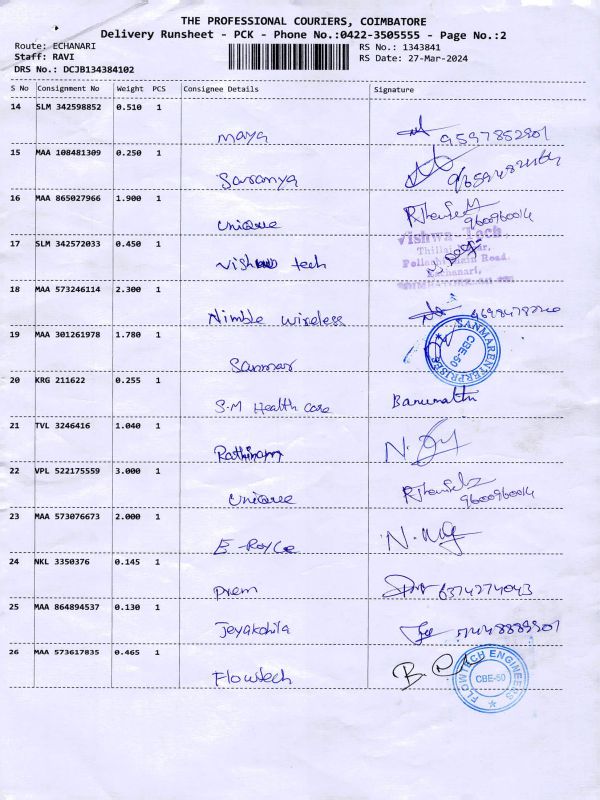 THE PROFESSIONAL COURIERS, COIMBATORE
Delivery Runsheet - PCK - Phone No.:0422-3505555 - Page No.:2
Route: ECHANARI RS No.: 1343841
Staff: RAVI RS Date: 27-Mar-2024
DRS No.: DCJB134384102
S No Consignment No Weight PCS Consignee Details Signature
14 SLM 342598852 0.510 1
maya 9597852901
15 MAA 108481309 0.250 1
Saranya
16 MAA 865027966 1.900 1
Unique 9600960014
17 SLM 342572033 0.450 1
Vishwa Tech
Pollachi Main Road,
Vishwa tech
18 MAA 573246114 2.300 1
Nimble wireless
19 MAA 301261978 1.780 1
Sanmar
SANMAR ENTERPRISES
CBE-50
20 KRG 211622 0.255 1
S.M Health care Banumathi
21 TVL 3246416 1.040 1
Rathinam
22 VPL 522175559 3.000 1
Unique 9600960014
23 MAA 573076673 2.000 1
E-Royce
24 NKL 3350376 0.145 1
Prem 6374274043
25 MAA 864894537 0.130 1
Jeyakohila
26 MAA 573617835 0.465 1
Flowtech
FLOWTECH ENGINEERS
CBE-50